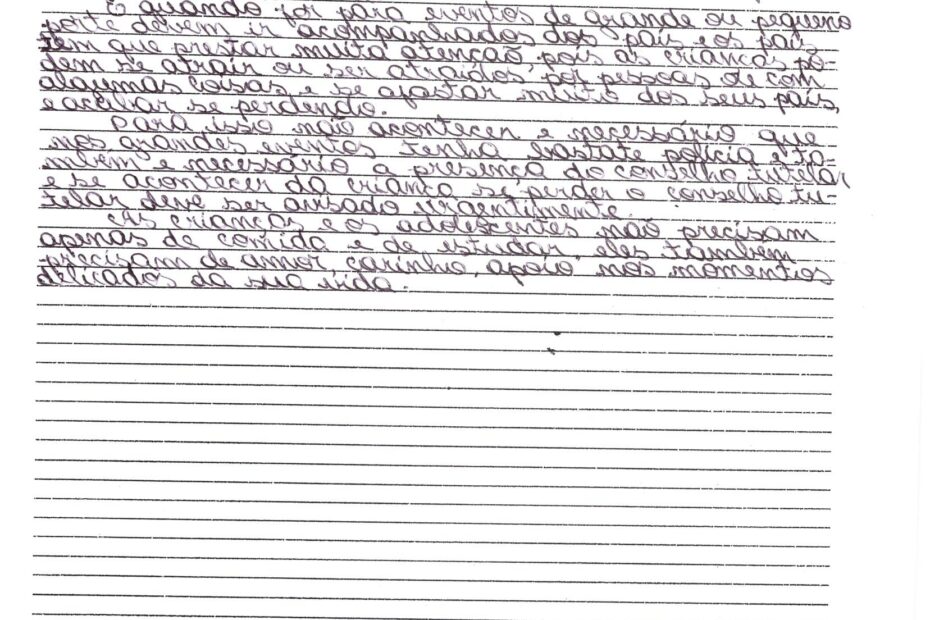 E quando for para eventos de grande ou pequeno
porte devem ir acompanhados dos pais e os pais
tem que prestar muita atenção, pois as crianças po-
dem se atrair ou ser atraidos, por pessoas ou com
algumas coisas e se afastar muito dos seus pais,
e acabar se perdendo.
Para isso não acontecer e necessário que
nos grandes eventos tenha bastate policia e ta-
mbem e necessário a presença do conselho tutelar
e se acontecer da criança se perder o conselho tu-
telar deve ser avisado urgentimente.
As crianças e os adolescentes não precisam
apenas de comida e de estudar, eles tambem
precisam de amor, carinho, apoio nos momentos
delicados da sua vida.